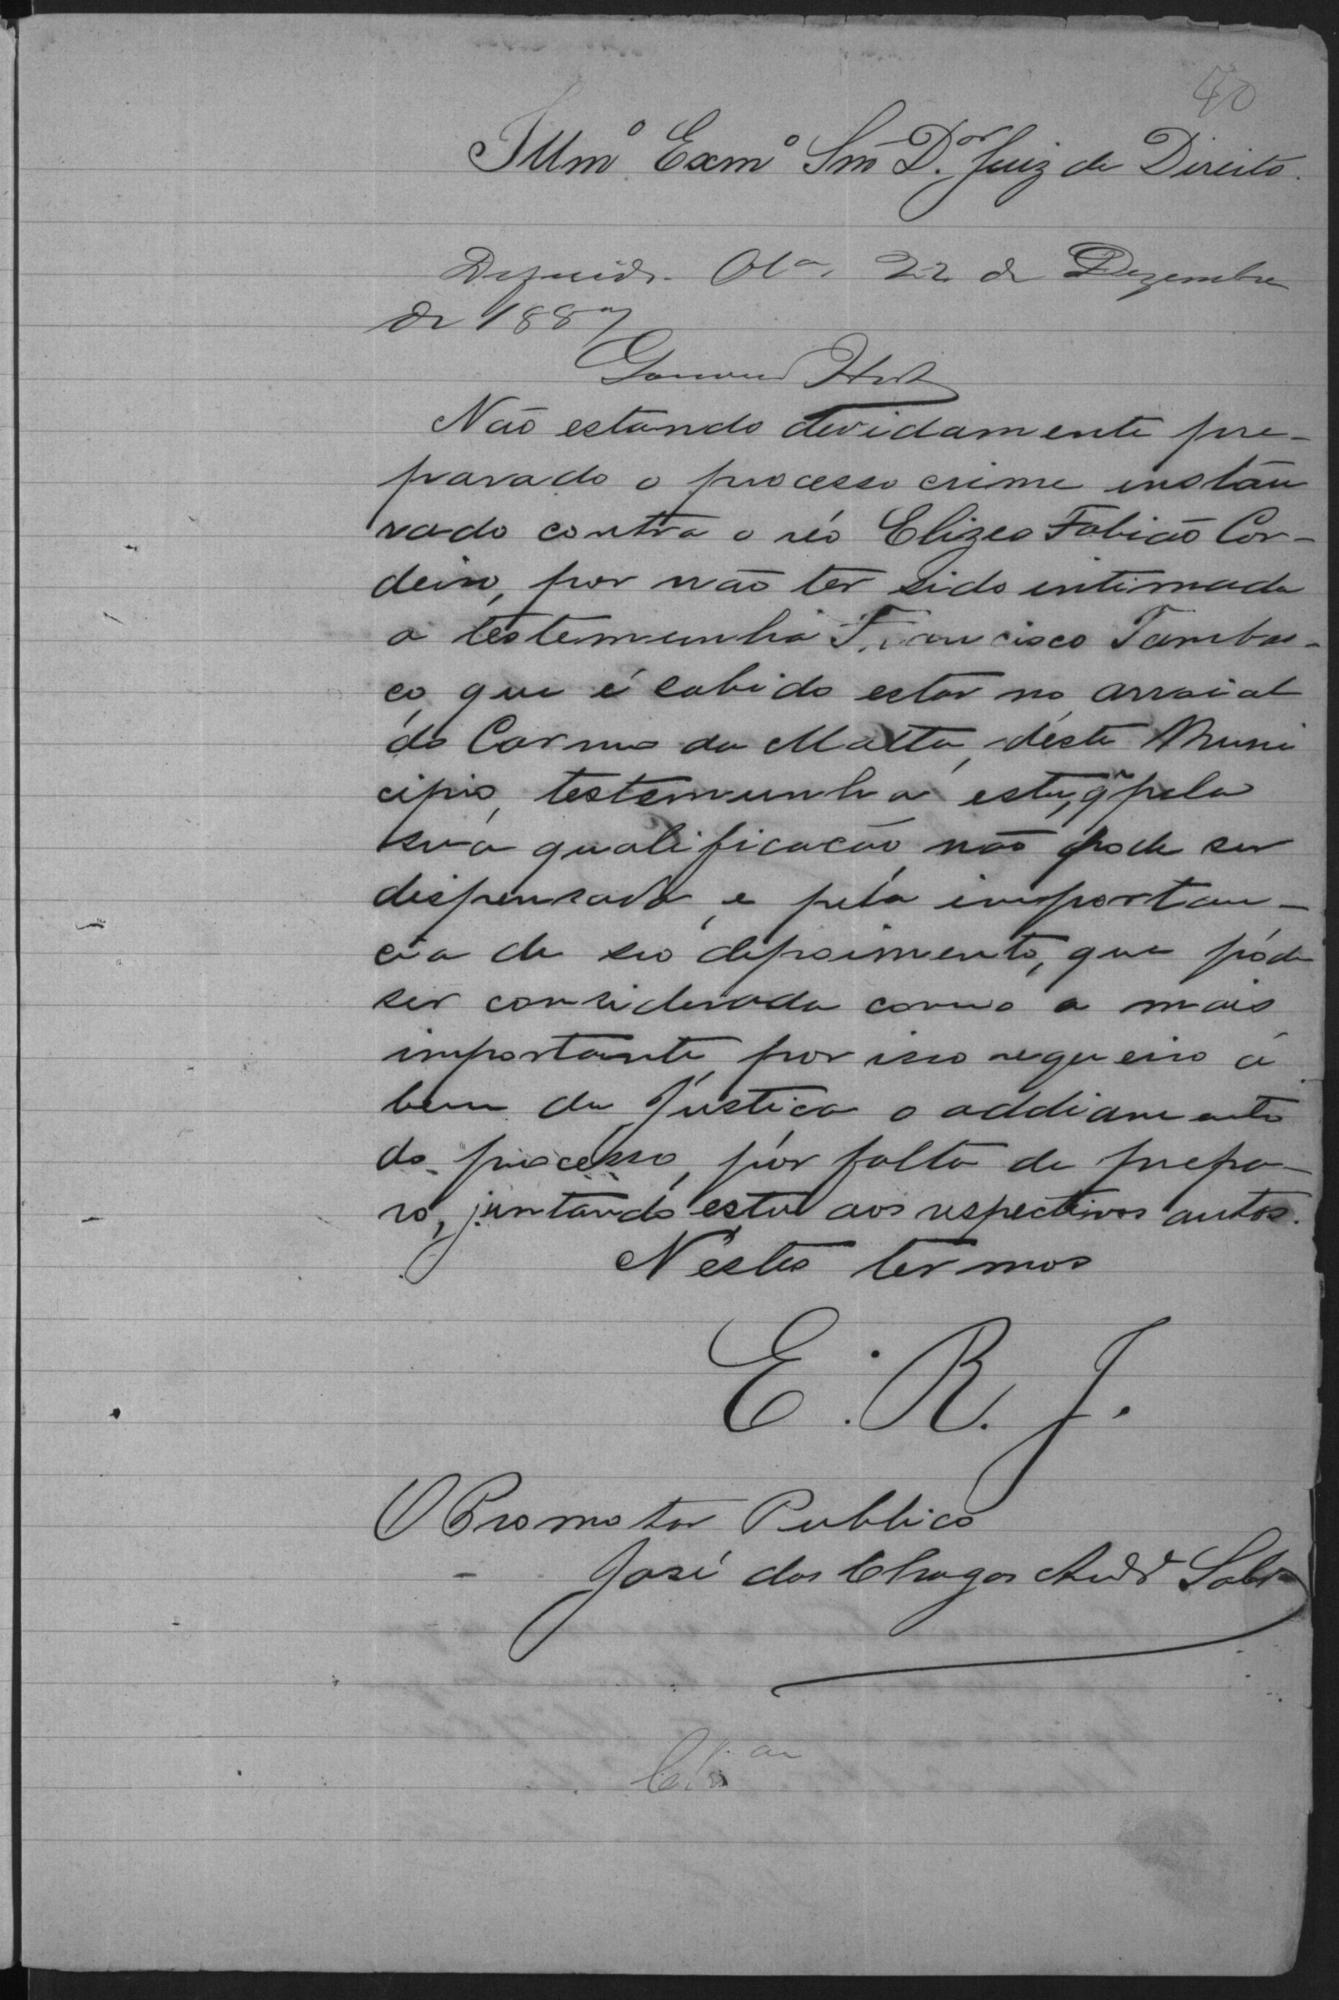 40
Illmº Exmº Snr̃ D.or Juiz de Direito.
22 de Dezembro
de 1887
Não estando devidamente pre-
parado o processo crime instau
rado contra o réo Elizeo Fabião Cor-
deiro, por não ter sido intimada
a testemunha Francisco Tambas-
co, que é sabido estar no arraial
do Carmo da Matta, déste Muni
cipio, testemunha esta, q̃ pela
sua qualificação, não póde ser
dispensada, e pela importan-
cia de seo depoimento, que póde
ser considerada como a mais
importante, por isso requeiro á
bem da Justiça o addiamento
do processo, por falta de prepa-
ro, juntando esta aos respectivos autos.
Nestes termos
E. R. J.
O Promotor Publico
José das Chagas Andr.e Sobr.